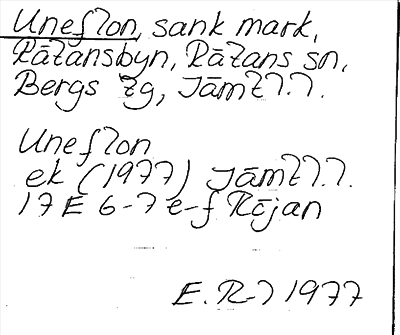 Uneflon, sank mark,
Rätansbyn, Rätans sn,
Bergs tg, Jämtl.l.
Uneflon
ek (1977) Jämtl.l.
17 E 6-7 e-f Röjan
E. R-l 1977